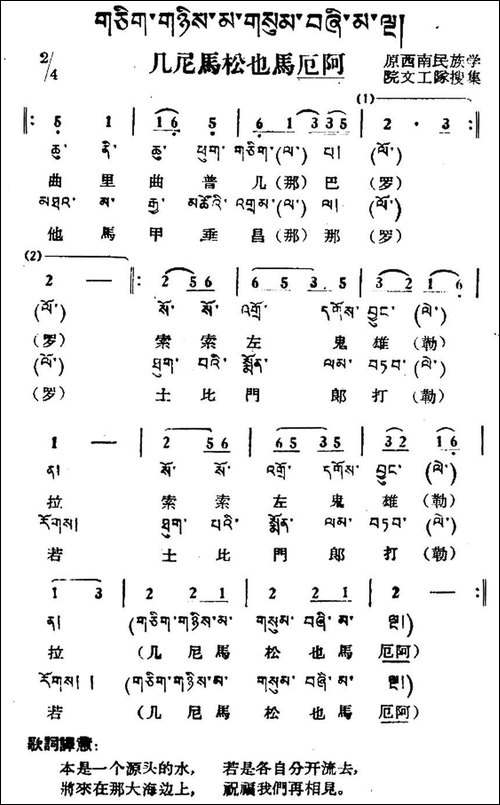 གཅིག་གཉིས་མ་གསུམ་བཞི་མ་ལྔ།
2/4 几尼馬松也馬厄阿 原西南民族学
院文工隊搜集
(1)
‖: 5 1 | 1 6 5 | 6 1 3 3 5 | 2 · 3 |
ཆུ་ ནི་ ཆུ་ ཕུག་ གཅིག་(ལ་) པ། (ལོ་)
曲 里 曲 普 几 (那) 巴 (罗)
མཐའ་ མ་ རྒྱ་ མཚོའི་ འགྲམ་(ལ་) ལ། (ལོ་)
他 馬 甲 垂 昌 (那) 那 (罗)
(2)
2 — :‖: 2 5 6 | 6 5 3 5 | 3 2 1 6 |
(ལོ་) སོ་ སོ་ འགྲོ་ དགོས་ བྱུང་ (ལེ་)
(罗) 索 索 左 鬼 雄 (勒)
(ལོ་) ཐུག་ པའི་ སྨོན་ ལམ་ བཏབ་ (ལེ་)
(罗) 土 比 門 郎 打 (勒)
1 — | 2 5 6 | 6 5 3 5 | 3 2 1 6 |
ན། སོ་ སོ་ འགྲོ་ དགོས་ བྱུང་ (ལེ་)
拉 索 索 左 鬼 雄 (勒)
རོགས། ཐུག་ པའི་ སྨོན་ ལམ་ བཏབ་ (ལེ་)
若 土 比 門 郎 打 (勒)
1 3 | 2 2 1 | 2 2 1 | 2 — :‖
ན། (གཅིག་གཉིས་མ་ གསུམ་ བཞི་ མ་ ལྔ།)
拉 (几 尼 馬 松 也 馬 厄阿)
རོགས། ། (གཅིག་གཉིས་མ་ གསུམ་ བཞི་ མ་ ལྔ།)
若 (几 尼 馬 松 也 馬 厄阿)
歌詞譯意：
本是一个源头的水， 若是各自分开流去，
將來在那大海边上， 祝福我們再相見。